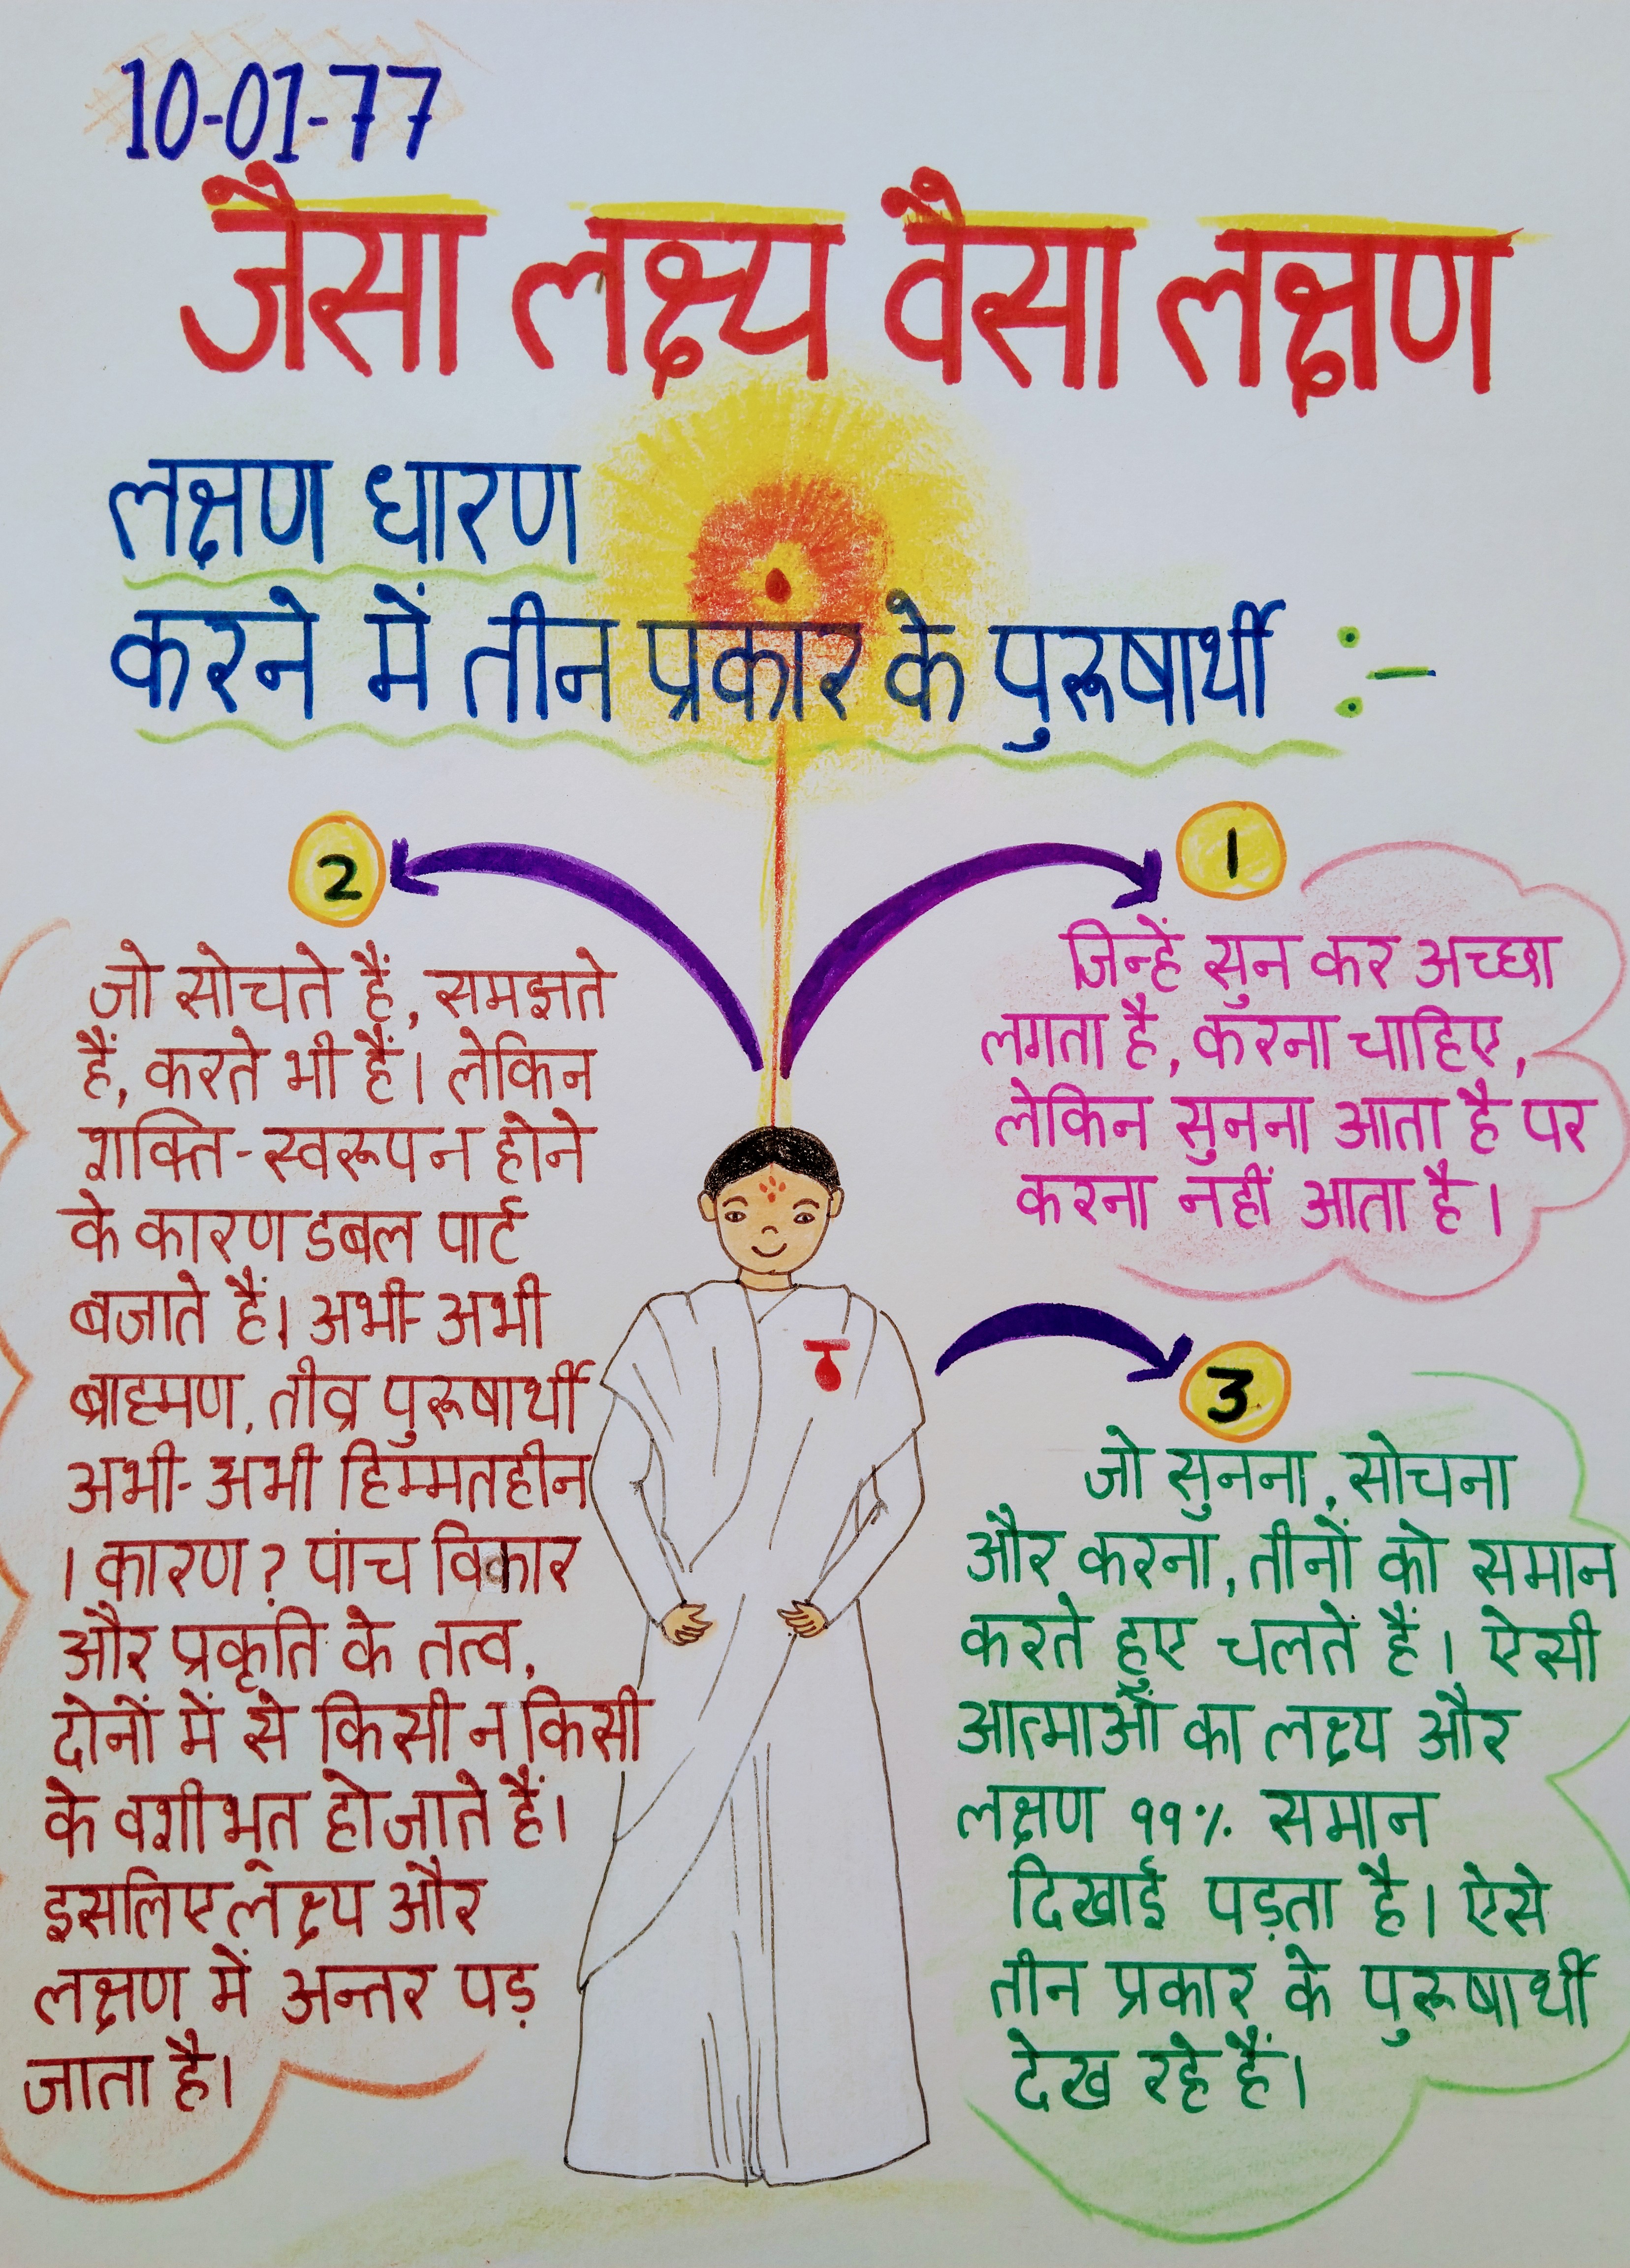 10-01-77
जैसा लक्ष्य वैसा लक्षण
लक्षण धारण
करने में तीन प्रकार के पुरूषार्थी :-
1
जिन्हें सुन कर अच्छा
लगता है, करना चाहिए,
लेकिन सुनना आता है पर
करना नहीं आता है।
2
जो सोचते हैं, समझते
हैं, करते भी हैं। लेकिन
शक्ति-स्वरूप न होने
के कारण डबल पार्ट
बजाते हैं। अभी-अभी
ब्राह्मण, तीव्र पुरूषार्थी
अभी-अभी हिम्मतहीन
। कारण? पांच विकार
और प्रकृति के तत्व,
दोनों में से किसी न किसी
के वशीभूत हो जाते हैं।
इसलिए लक्ष्य और
लक्षण में अन्तर पड़
जाता है।
3
जो सुनना, सोचना
और करना, तीनों को समान
करते हुए चलते हैं। ऐसी
आत्माओं का लक्ष्य और
लक्षण ११% समान
दिखाई पड़ता है। ऐसे
तीन प्रकार के पुरूषार्थी
देख रहे हैं।